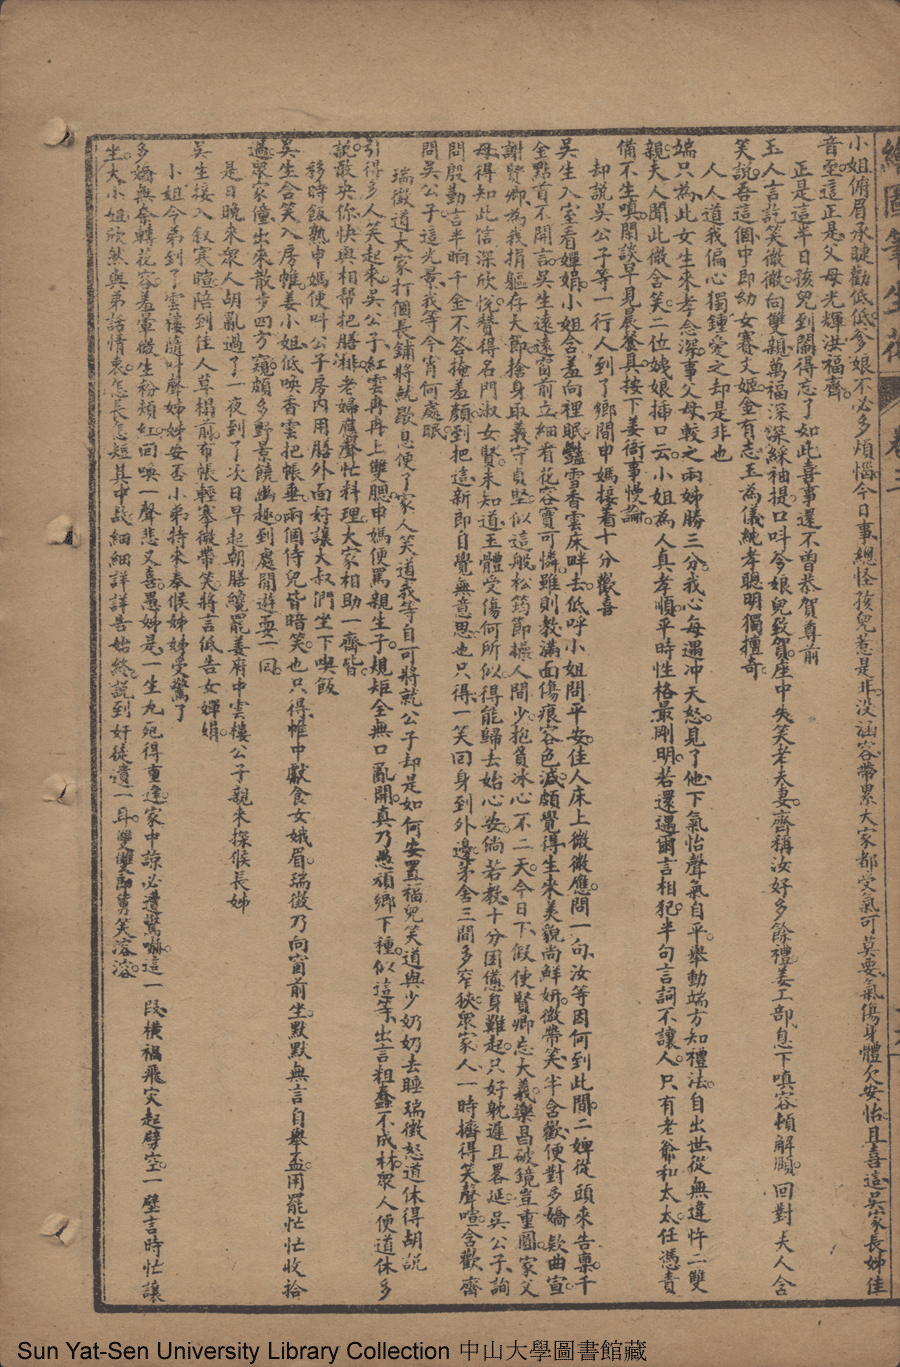 繪圖筆生花 卷三
小姐俯眉承睫勸低低爹娘不必多煩惱今日事總怪孩兒惹是非没涵容帶累大家都受氣可莫要氣傷身體欠安怡且喜這吳家長姊佳
音至這正是父母光輝洪福齊
正是這半日孩兒到關得忘了如此喜事還不曾恭賀尊前
玉人言訖笑微微向雙親萬福深深綵袖提口叫爹娘兒致賀座中失笑老夫妻齊稱汝好多餘禮姜工部息下嗔容頓解頤回對夫人含
笑說吾這個中即幼女賽丈姬金有志玉為儀純孝聰明獨擅奇
人人道我偏心獨鍾愛之却是非也
端只為此女生來孝念深事父母較之兩姊勝三分我心每遇冲天怒見了他下氣怡聲氣自平舉動端方知禮法自出世從無違忤二雙
親夫人聞此微含笑二位姨娘插口云小姐為人真孝順平時性格最剛明若還遇爾言相犯半句言詞不讓人只有老爺和太太任憑責
備不生嗔閒談早見晨餐具按下姜衙事慢論
却說吳公子等一行人到了鄉間申媽接着十分歡喜
吳生入室看嬋娟小姐含羞向裡眠豔雪香雲床畔去低呼小姐問平安佳人床上微微應問一句汝等因何到此間二婢從頭來告禀千
金點首不開言吳生遠遠窗前立細看花容實可憐雖則教滿面傷痕容色減頗覺得生來美貌尚鮮妍微帶笑半含歡便對多嬌欵曲宣
謝賢卿為我捐軀存大節捨身取義守貞堅似這般松筠節操人間少抱負冰心不二天今日下假使賢卿忘大義樂昌破鏡豈重圓家父
母得知此信深欣悅贊得名門淑女賢未知道玉體受傷何所似得能歸去始心安倘若教十分困憊身難起只好躭遲且畧延吳公子詢
問殷勤言半晌千金不答掩羞顏到把這新郎自覺無意思也只得一笑回身到外邊茅舍三間多窄狹眾家人一時擠得笑聲喧含歡齊
問吳公子這光景我等今宵何處眠
瑞徵道大家打個長鋪將就歇息便了家人笑道我等自可將就公子却是如何安置福兒笑道與少奶奶去睡瑞徵怒道休得胡說
引得多人笑起來吳公子紅雲冉冉上雙腮申媽便罵親生子規矩全無口亂開真乃愚頑鄉下種似這等出言粗蠢不成材眾人便道休多
說敢央你快與相幫把膳排老婦應聲忙料理大家相助一齊皆
移時飯熟申媽便叫公子房內用膳外面好讓大叔們坐下喫飯
吳生含笑入房帷姜小姐低喚香雲把帳垂兩個侍兒皆暗笑也只得帷中獻食女娥眉瑞徵乃向窗前坐默默無言自舉盃用罷忙忙收拾
過眾家僮出來散步四方窺頗多野景饒幽趣到處閒遊耍一回
是日晚來眾人胡亂過了一夜到了次日早起朝膳纔罷姜府中雲樓公子親來探候長姊
吳生接入叙寒暄陪到佳人草榻前布帳輕搴微帶笑將言低告女嬋娟
小姐今弟到了雲樓隨叫聲姊姊安否小弟特來奉候姊姊受驚了
多嬌無奈轉花容羞暈微生粉頰紅回喚一聲悲又喜愚姊是一生九死得重逢家中諒必遭驚嚇這一段橫禍飛灾起劈空一壁言時忙讓
坐大小姐欣然與弟話情衷怎長怎短其中故細細詳詳告始終說到奸徒遺一耳雙雙郎舅笑溶溶
Sun Yat-Sen University Library Collection 中山大學圖書館藏